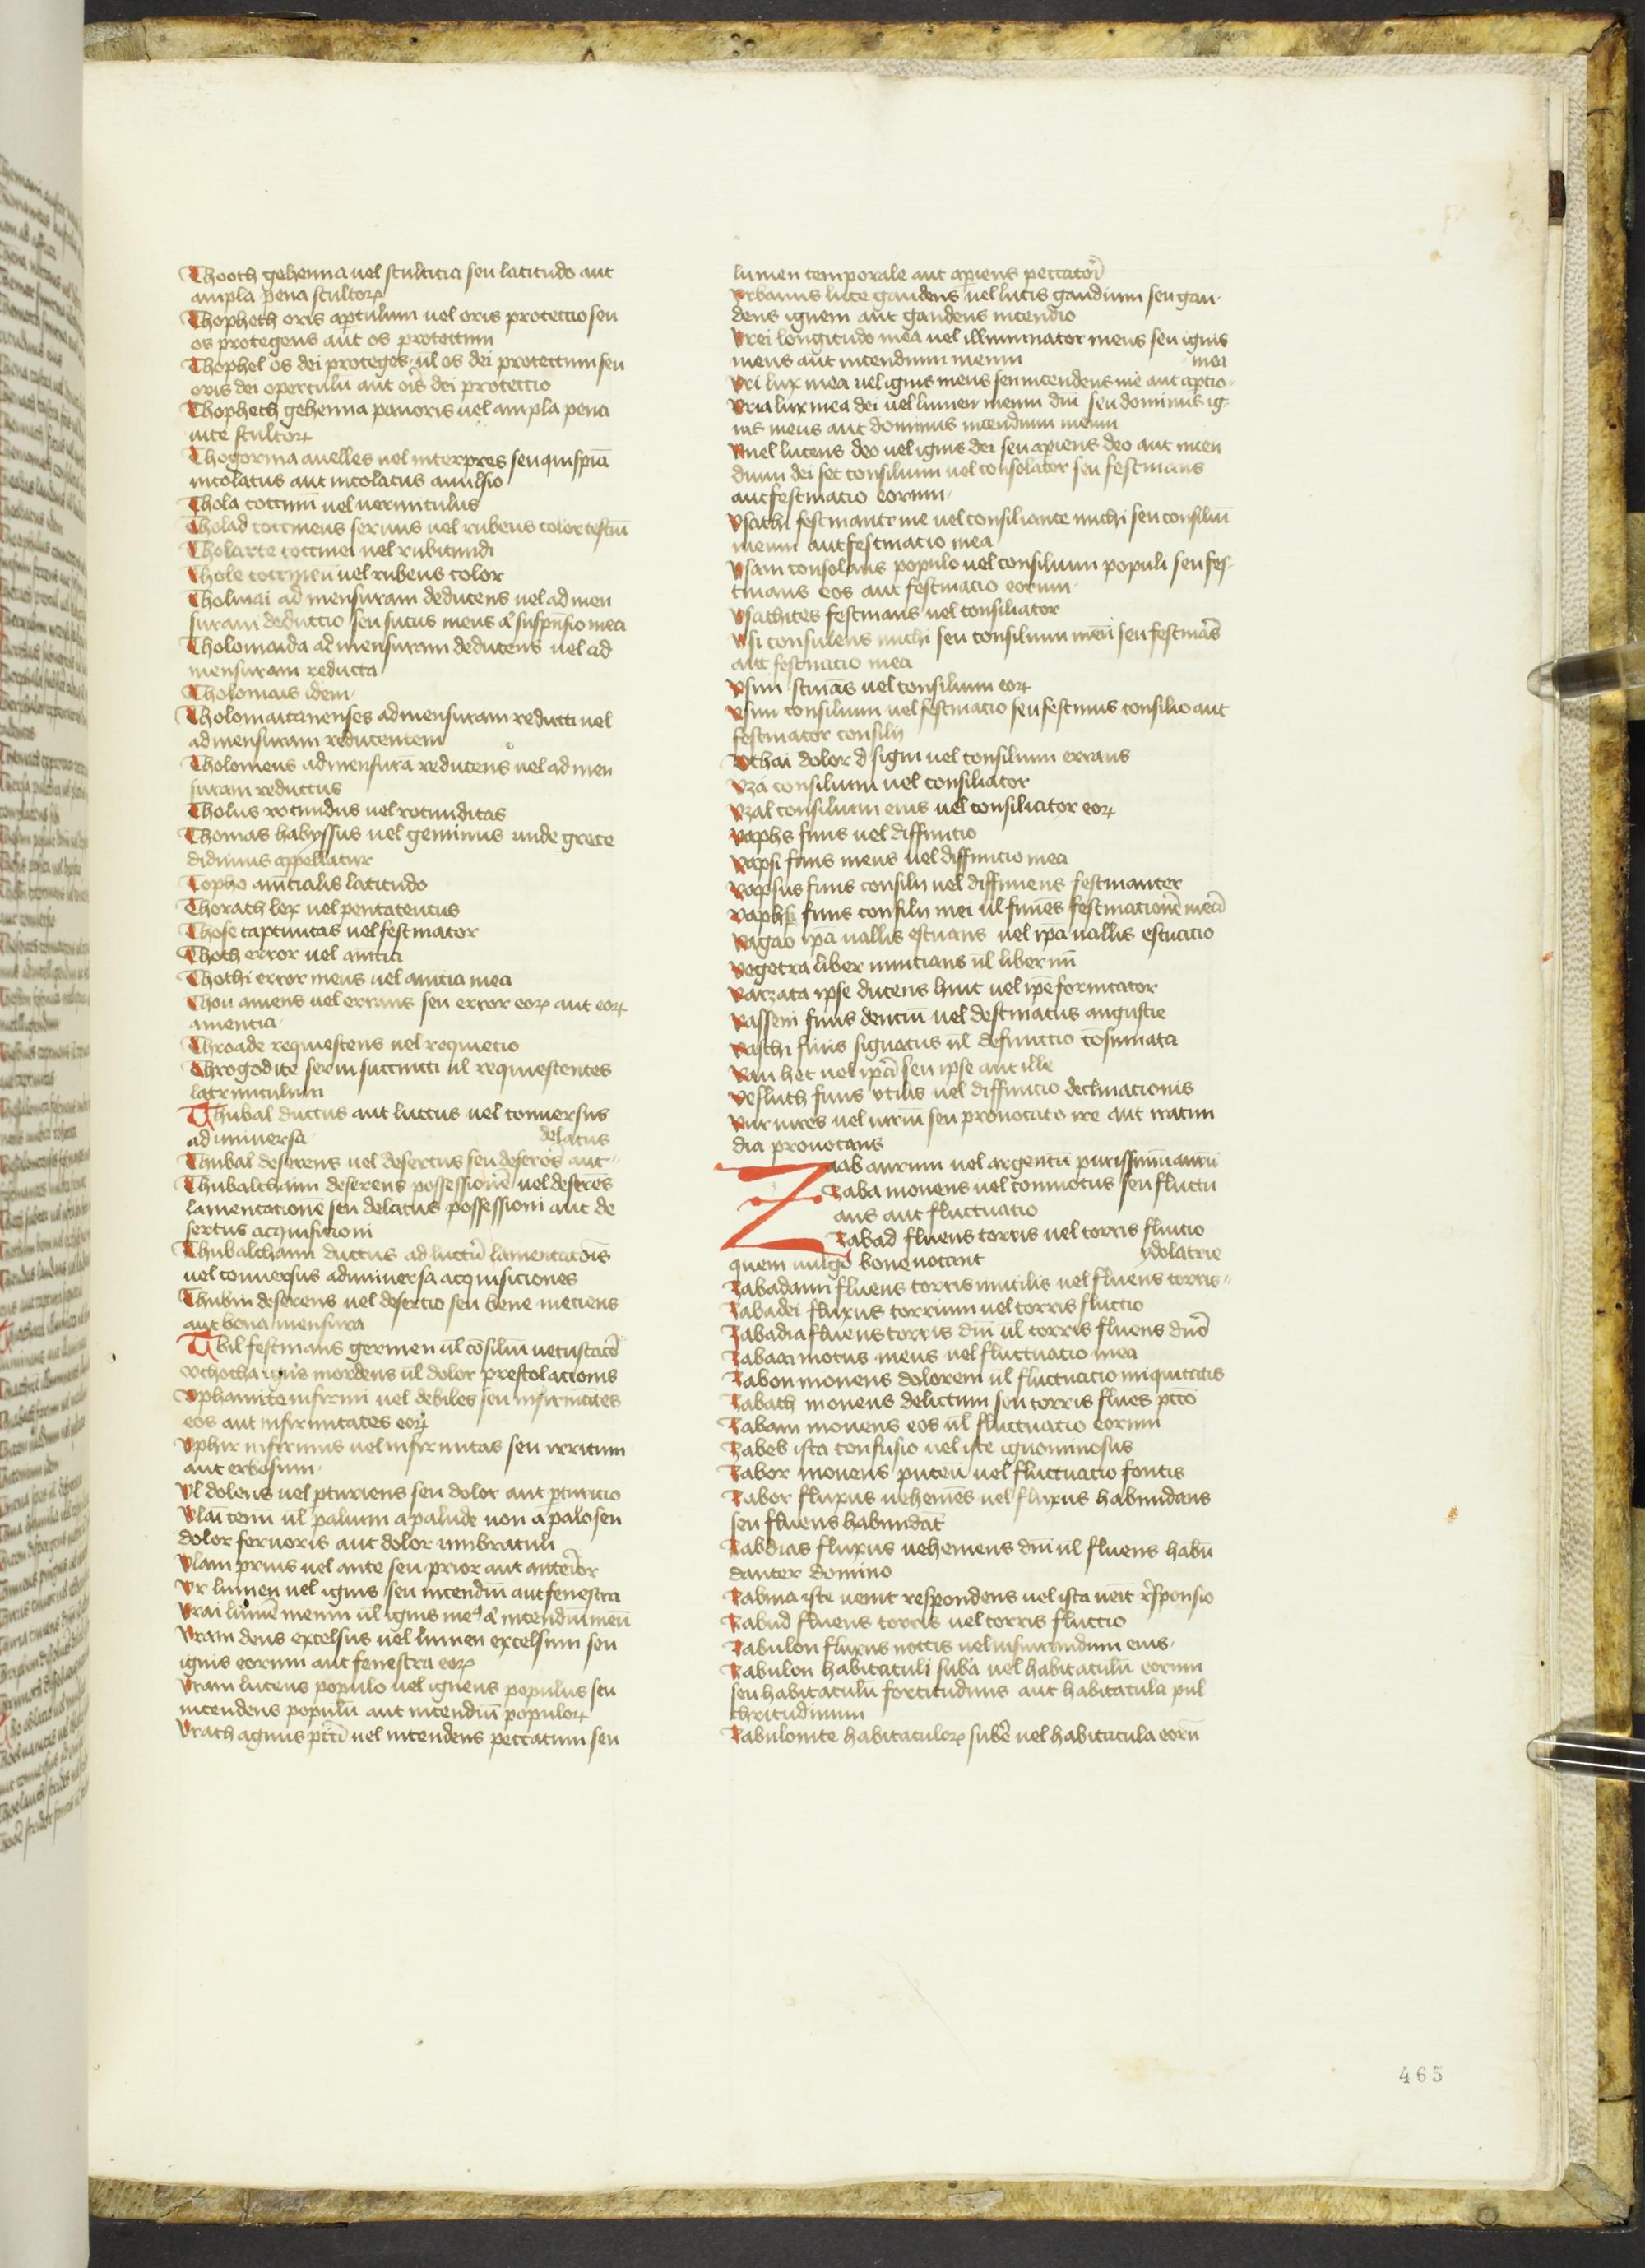 Thooth gehenna uel stulticia seu latitudo aut
ampla pena stultoꝝ
Thopheth oris aptulum uel oris protectio seu
os protegens aut os protectum
Thophel os dei proteges ul os dei protectum seu
oris dei operculū aut oīs dei protectio
Thopheth gehenna pauoris uel ampla pena
uite stultoꝝ
Thogorma auelles uel interpres seu quispiā
incolatus aut incolatus auulsio
Thola coccinū uel uermiculus
Tholad coccineus seruus uel rubens color
Tholacte coccinei uel rubicundi
Thole coccineū uel rubens color
Tholmai ad mensuram deducens uel ad men
suram deductio seu sulcus meus aͭ suspēsio mea
Tholomaida ad mensuram deducens uel ad
mensuram reducta
Tholomais idem
Tholomaitanenses ad mensuram reducti uel
ad mensuram reducentem
Tholomeus ad mensurā reducens uel ad men
suram reductus
Tholus rotundus uel rotunditas
Thomas habyssus uel geminus unde grece
didimus appellatur
Topho latitudo
Thorath lex uel pentateucus
Those captiuitas uel festinator
Thoth error uel
Thothi error meus uel amēcia mea
Thou amens uel errans seu error eoꝝ aut eoꝝ
amentia
Throade requiescens uel requietio
Throgodite serui succincti ul requiescentes
latrunculum
Thubal ductus aut luctus uel conuersus
ad uniuersa delatus
Thubal deserens uel desertus seu deseros aut
Thubalchaim deserens possessionē uel deserēs
lamentationē seu delatus possessioni aut de
sertus acquisitioni
Thubalchaim ductus ad luctū lamentatōis
uel conuersus ad uniuersa acquisiciones
Thubin deserens uel desertio seu bene meciens
aut bona mensura
Ubil festinans germen ul cōsiliū uetustatē
Vchocha ignis mordens ul dolor prestolacionis
Vphamite infirmi uel debiles seu infirmātes
eos aut infirmitates eoꝝ
Vphir infirmus uel infirmitas seu irritum
aut erbosum
Vl dolens uel pturiens seu dolor aut pturicio
Vlai cenū ul palum a palude non a palo seu
dolor feruoris aut dolor umbraculi
Vlam prius uel ante seu prior aut anterior
Vr lumen uel ignis seu incendiū aut fenestra
Vrai lumē meum ul ignis meꝰ aͭ incendiū meū
Vram deus excelsus uel lumen excelsum seu
ignis eorum aut fenestra eoꝝ
Vram lucens populo uel igneus populus seu
incendens populū aut incendiū populoꝝ
Vrath agnus pcti uel incendens peccatum seu
lumen temporale aut apiens peccatori
Vrbanus luce gaudens uel lucis gaudium seu gau
dens ignem aut gaudens incendio
Vrei longitudo mea uel illuminator meus seu ignis
meus aut incendium meum mei
Vri lux mea uel ignis meus seu incendens me aut aptio
Vria lux mea dei uel lumen meum dni seu dominus ig
nis meus aut dominus incendium meum
Vriel lucens deo uel ignis dei seu apiens deo aut incen
dium dei set consilium uel consolator seu festinans
aut festinatio eorum
Vsathi festinante me uel consiliante michi seu consiliū
meum aut festinacio mea
Vsam consolans populo uel consilium populi seu fes
tinans eos aut festinacio eorum
Vsathites festinans uel consiliator
Vsi consulens michi seu consilium meū seu festinās
aut festinacio mea
Vsim uel consilium eoꝝ
Vsim consilium uel festinatio seu festinus consilio aut
festinator consilij
Vthai dolor d signi uel consilium errans
Vza consilium uel consiliator
Vzal consilium eius uel consiliator eoꝝ
Vaphs finis uel diffinitio
Vapsi finis meus uel diffinicio mea
Vapsus finis consilij uel diffiniens festinanter
Vaphsi finis consilij mei ul finies festinationē meā
Vagao ipā uallis estuans uel ipa uallis estuacio
Vegetra liber nuncians ul liber
Vaezata ipse ducens huic uel ipē fornicator
Vasseni finis dentiū uel destinatus angustie
Vasthi finis signatus ul defunctio cōsumata
Vau hec uel ipā seu ipse aut ille
Vesluth finis utilis uel diffinicio declinacionis
Vur uires uel uiriū seu prouocato ire aut iracun
dia prouocans
Zaab aurum uel argentū purissimū aurū
Zaba mouens uel commotus seu fluctu
ans aut fluctuatio
Zabad fluens torris uel torris fluitio
quem uulgo bone uocant ydolatrie
Zabadam fluens torris inutilis uel fluens torris
Zabadei fluxus torrium uel torris fluctio
Zabadia fluens torris dni ul torris fluens dno
Zabaam motus meus uel fluctuatio mea
Zabon mouens dolorem ul fluctuacio iniquitatis
Zabath mouens delictum seu torris fluēs pcto
Zabam mouens eos ul fluctuacio eorum
Zabeb ista confusio uel iste ignominosus
Zabor mouens puteū uel fluctuacio fontis
Zabor fluxus uehemēs uel fluxus habundans
seu fluens habundāt
Zabdias fluxus uehemens dni ul fluens habū
danter domino
Zabina iste uenit respondens uel ista ueīt rsponsio
Zabud fluens torris uel torris fluctio
Zabulon fluxus noctis uel iusiurandum eius
Zabulon habitaculi suba uel habitaculū eorum
seu habitaculū fortitudinis aut habitacula pul
chritudinum
Zabulonite habitaculoꝝ sube uel habitacula eorū
465